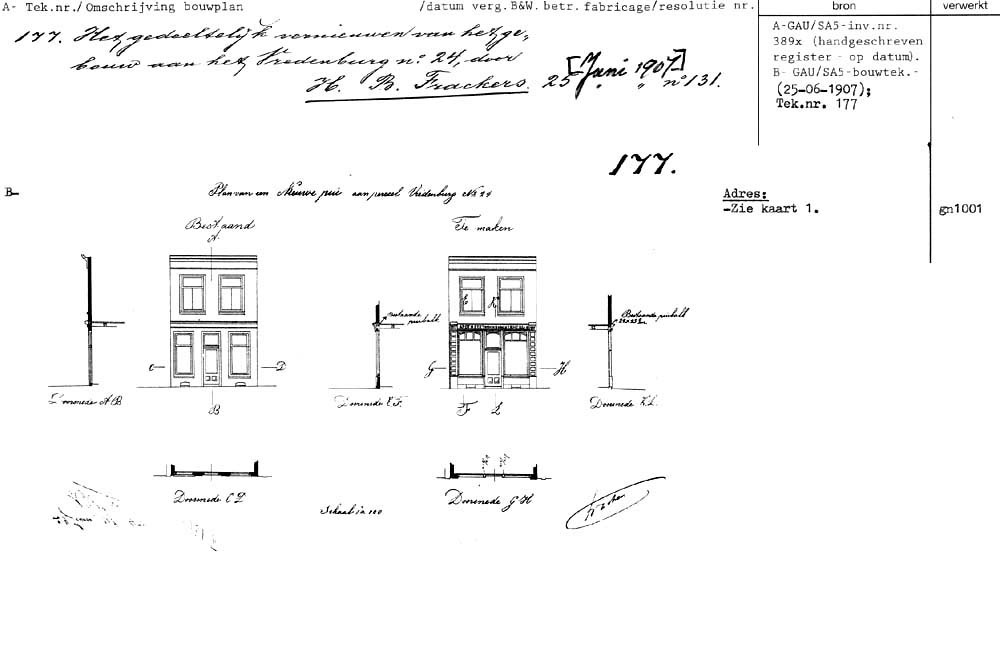 A- Tek.nr./ Omschrijving bouwplan /datum verg.B&W. betr. fabricage/resolutie nr. bron verwerkt
177. Het gedeeltelijk vernieuwen van het ge-
bouw aan het Vredenburg no. 24, door
H. B. Frackers. 25 [Juni 1907] " " no 131.
A-GAU/SA5-inv.nr.
389x (handgeschreven
register - op datum).
B- GAU/SA5-bouwtek.-
(25-06-1907);
Tek.nr. 177
177.
B- Plan van een Nieuwe pui aan perceel Vredenburg No 24
Adres:
-Zie kaart 1.
gn1001
Bestaand
A.
Te maken
E K
bestaande puibalk
Bestaande puibalk
C D
G H
B
F L
Doorsnede A B
Doorsnede E F.
Doorsnede K L.
Doorsnede C D
Doorsnede G H
Schaal 1 à 100